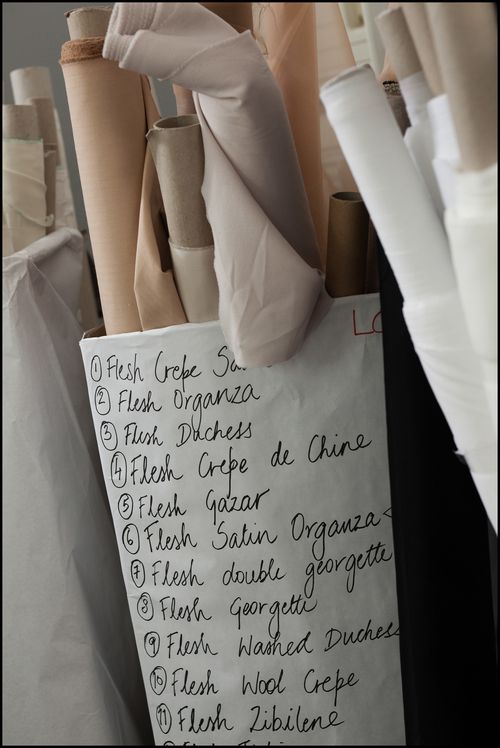 LO
① Flesh Crepe Sa
② Flesh Organza
③ Flesh Duchess
④ Flesh Crepe de Chine
⑤ Flesh Gazar
⑥ Flesh Satin Organza
⑦ Flesh double georgette
⑧ Flesh Georgette
⑨ Flesh Washed Duchess
⑩ Flesh Wool Crepe
⑪ Flesh Zibilene